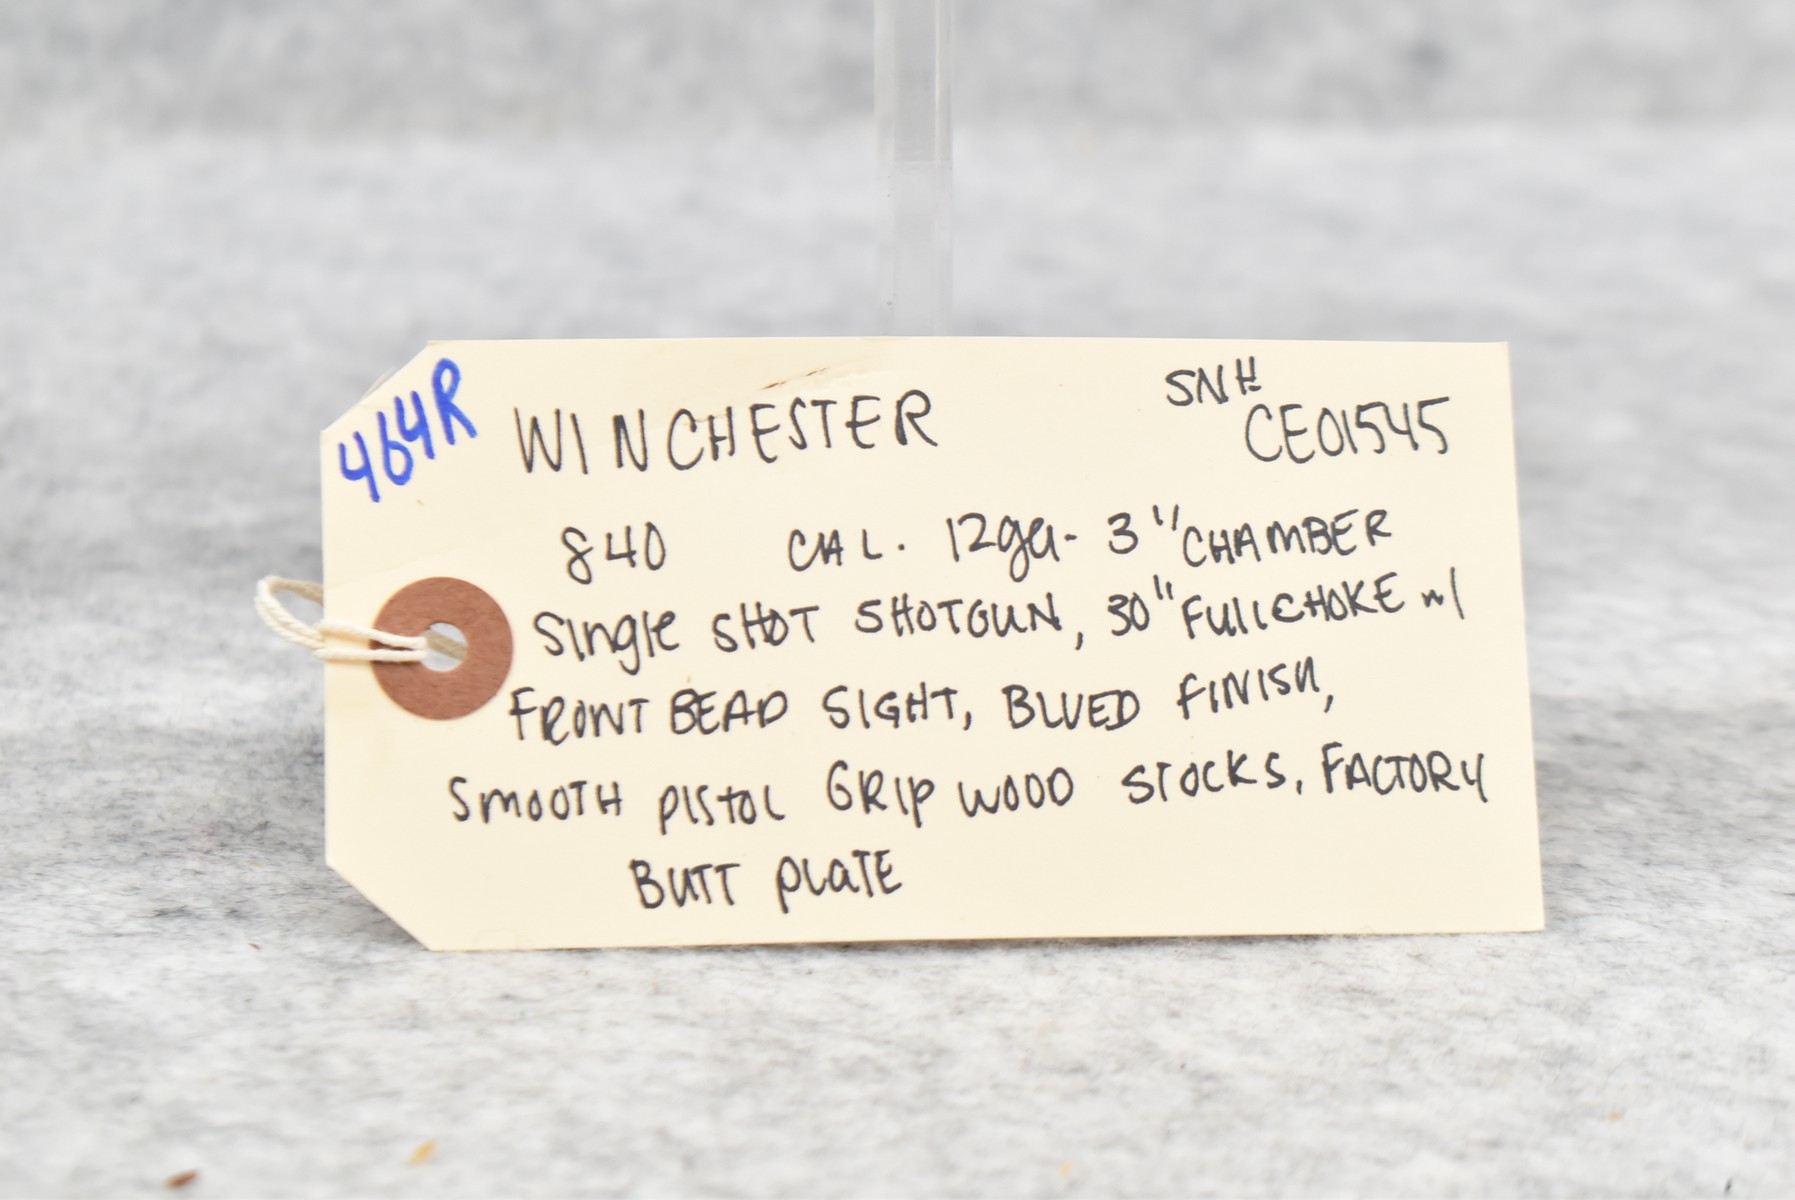 464R
WINCHESTER
SN#
CE01545
840 CAL. 12ga- 3" CHAMBER
Single SHOT SHOTGUN, 30" FULL CHOKE w/
FRONT BEAD SIGHT, BLUED FINISH,
SMOOTH PISTOL GRIP WOOD STOCKS, FACTORY
BUTT PLATE